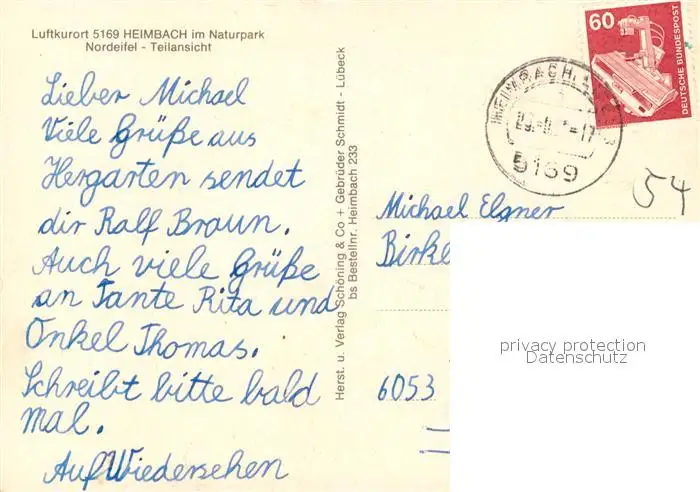 Luftkurort 5169 HEIMBACH im Naturpark
Nordeifel - Teilansicht
Lieber Michael
Viele Grüße aus
Hergarten sendet
dir Ralf Braun.
Auch viele Grüße
an Tante Rita und
Onkel Thomas.
Schreibt bitte bald
mal.
Auf Wiedersehen
Herst. u. Verlag Schöning & Co + Gebrüder Schmidt - Lübeck
bs Bestellnr. Heimbach 233
60
DEUTSCHE BUNDESPOST
HEIMBACH
5169
54
Michael Elsner
Birke
6053
privacy protection
Datenschutz